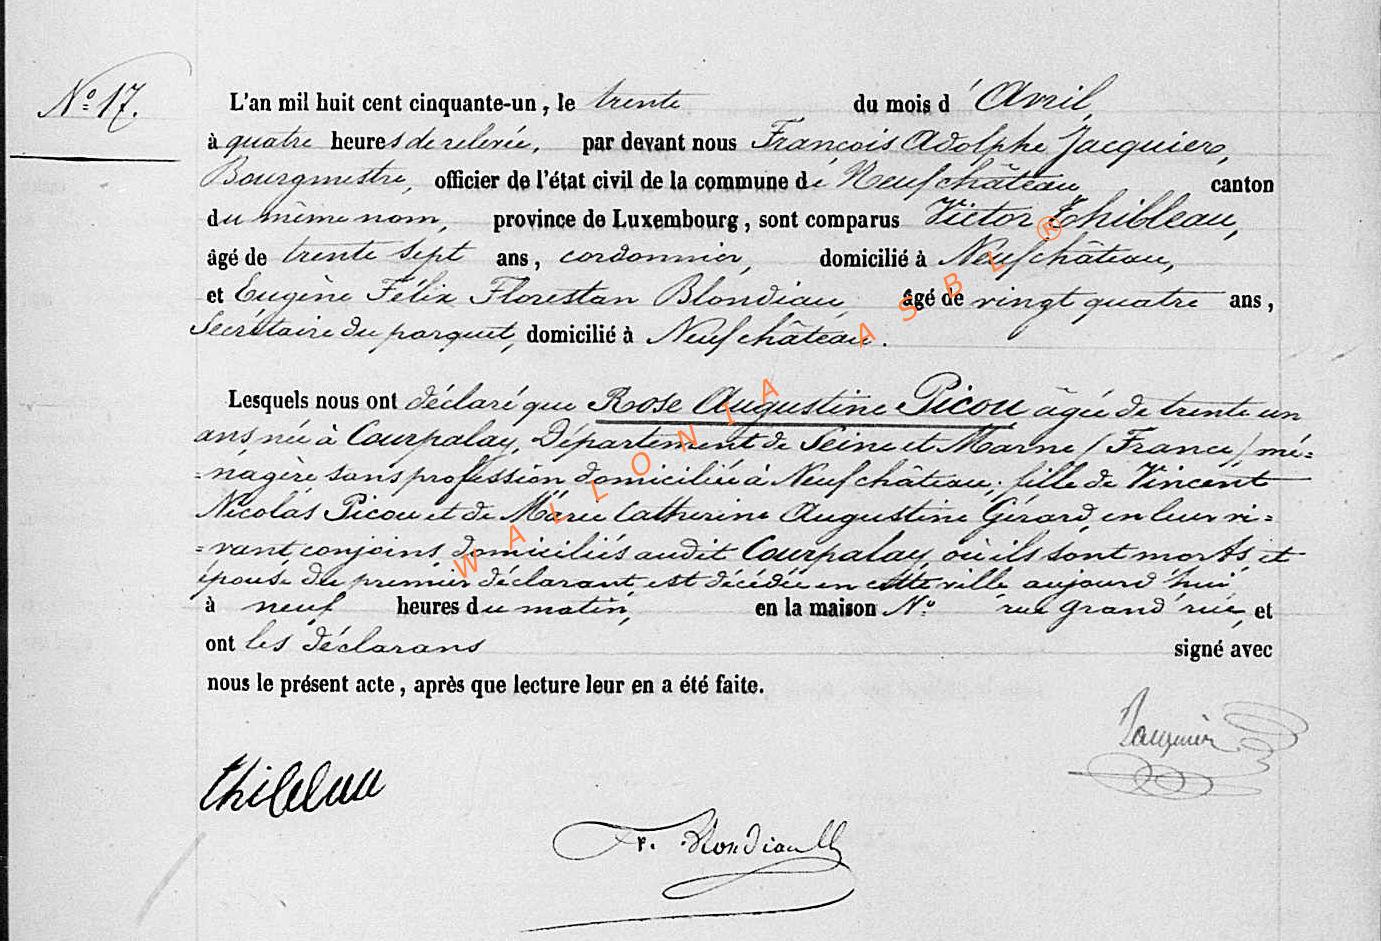 N° 17.
L'an mil huit cent cinquante-un, le trente du mois d'Avril,
à quatre heures de relevée, par devant nous François Adolphe Jacquier,
Bourgmestre, officier de l'état civil de la commune de Neufchâteau canton
du même nom, province de Luxembourg, sont comparus Victor Thibleau,
âgé de trente sept ans, cordonnier, domicilié à Neufchâteau,
et Eugène Félix Florestan Blondiau, âgé de vingt quatre ans,
Secrétaire du parquet, domicilié à Neufchâteau.
Lesquels nous ont déclaré que Rose Augustine Picou âgée de trente un
ans née à Courpalay, Département de Seine et Marne (France) mé=
=nagère sans profession domiciliée à Neufchâteau; fille de Vincent
Nicolas Picou et de Marie Catherine Augustine Gérard, en leur vi=
=vant conjoins domiciliés audit Courpalay, où ils sont morts, et
épouse du premier déclarant, est décédée en cette ville aujourd'hui
à neuf heures du matin, en la maison N° rue grand'rue, et
ont les déclarans signé avec
nous le présent acte, après que lecture leur en a été faite.
Jacquier
Thibleau
Fr. Blondiau
WALLONIA ASBL ®